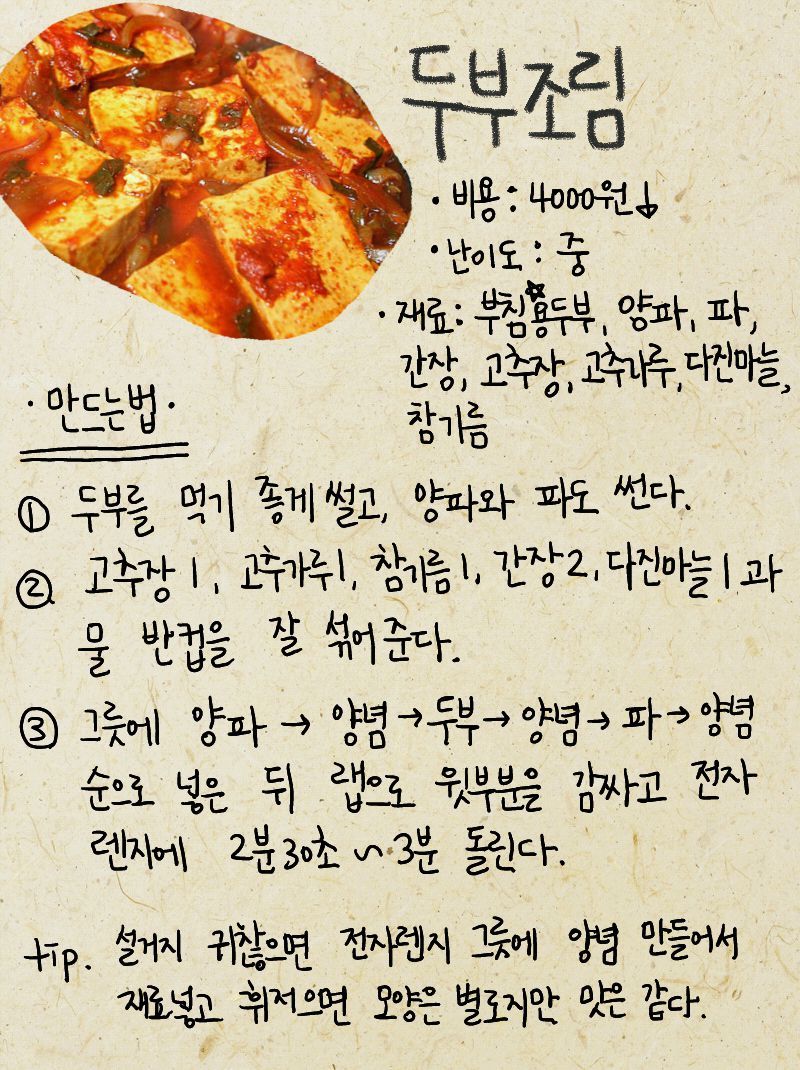 두부조림
· 비용 : 4000원↓
· 난이도 : 중
· 재료 : 부침용두부, 양파, 파,
간장, 고추장, 고추가루, 다진마늘,
참기름
· 만드는법 ·
① 두부를 먹기 좋게 썰고, 양파와 파도 썬다.
② 고추장 1, 고추가루1, 참기름1, 간장2, 다진마늘1과
물 반컵을 잘 섞어준다.
③ 그릇에 양파 → 양념 → 두부 → 양념 → 파 → 양념
순으로 넣은 뒤 랩으로 윗부분을 감싸고 전자
렌지에 2분30초 ~ 3분 돌린다.
tip. 설거지 귀찮으면 전자렌지 그릇에 양념 만들어서
재료넣고 휘저으면 모양은 별로지만 맛은 같다.